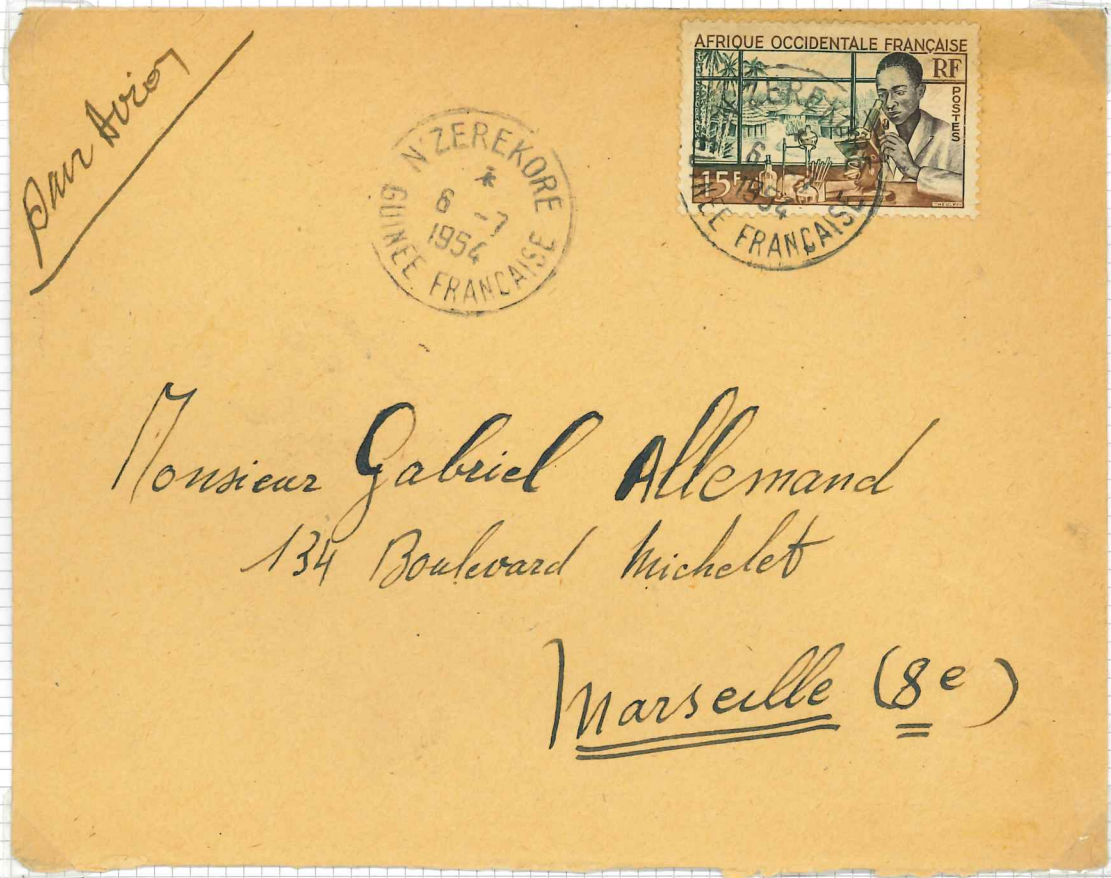 par Avion
N'ZEREKORE
*
6 -7
1954
GUINÉE FRANÇAISE
AFRIQUE OCCIDENTALE FRANÇAISE
RF
POSTES
15F
N'ZEREKORE
6
1954
GUINÉE FRANÇAISE
Monsieur Gabriel Allemand
134 Boulevard Michelet
Marseille (8e)